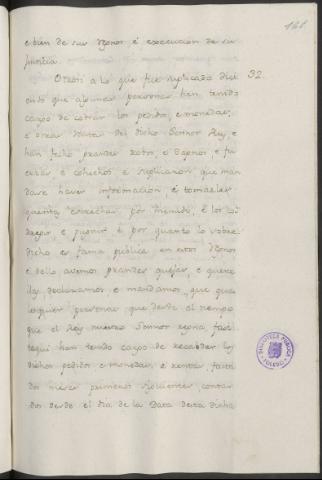 161
e bien de sus Regnos é execucion de su
Justicia.
Otrosi a lo que fue suplicado dici 32
endo que algunas personas han tenido
cargo de cobrar los pedidos, e monedas,
e otras Rentas del dicho Señor Rey, e
han fecho grandes robos, e Daños, e fu
erzas, é cohechos, é suplicaron que man
dase haver informacion, é tomarles
quenta, estrechar, por menudo, é los
é punir, é por quanto lo sobre
dicho es fama publica en estos Regnos
é dello avemos grandes quejas, e quere
llas, declaramos, e mandamos, que qua
lesquier personas que desde el tiempo
que el Rey nuestro Señor regna, fasta
aqui han tenido cargo de recabdar los
dichos pedidos e monedas, é rentas, fasta
dos meses primeros siguientes, contan
dos desde el dia de la Data desta dicha
BIBLIOTECA PUBLICA
TOLEDO